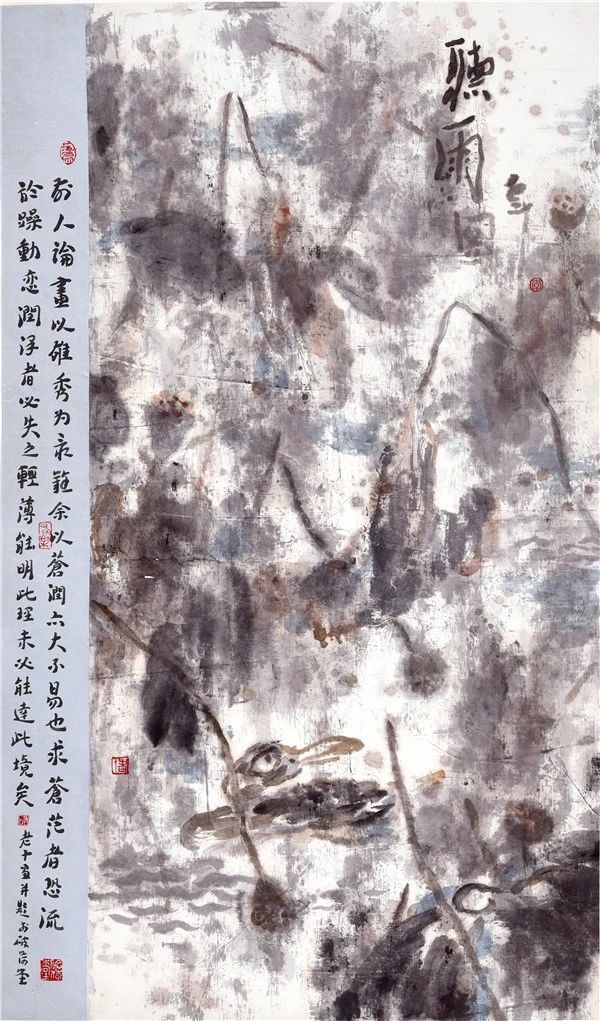 聽雨
前人論畫以雄秀为最難余以蒼潤亦大不易也求蒼茫者恐流
於躁動恋潤泽者必失之輕薄能明此理未必能達此境矣
老十画并题於破荷堂